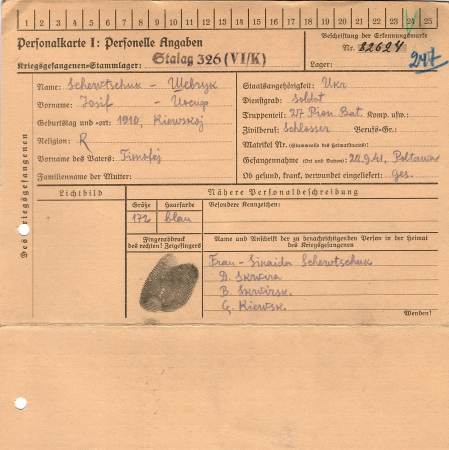 1 2 3 4 5 6 7 8 9 10 11 12 13 14 15 16 17 18 19 20 21 22 23 24 25
Personalkarte I: Personelle Angaben
Beschriftung der Erkennungsmarke
Nr. 82624
247
Kriegsgefangenen-Stammlager: Stalag 326 (VI/K)
Lager:
Des Kriegsgefangenen
Name: Schewtschuk -
Vorname: Josif -
Geburtstag und -ort: 1910, Kiewskoj
Religion: R
Vorname des Vaters: Timofej
Familienname der Mutter:
Staatsangehörigkeit: Ukr
Dienstgrad: Soldat
Truppenteil: 27 Pion. Bat. Komp. usw.:
Zivilberuf: Schlosser Berufs-Gr.:
Matrikel Nr. (Stammrolle des Heimatstaates):
Gefangennahme (Ort und Datum): 22.9.41, Poltawa
Ob gesund, krank, verwundet eingeliefert: ges.
Lichtbild
Nähere Personalbeschreibung
Größe
Haarfarbe
Besondere Kennzeichen:
172
blau
Fingerabdruck
des rechten! Zeigefingers
Name und Anschrift der zu benachrichtigenden Person in der Heimat
des Kriegsgefangenen
Frau - Sinaida Schewtschuk
D. Skwira
B. Skwirsk.
G. Kiewsk.
Wenden!